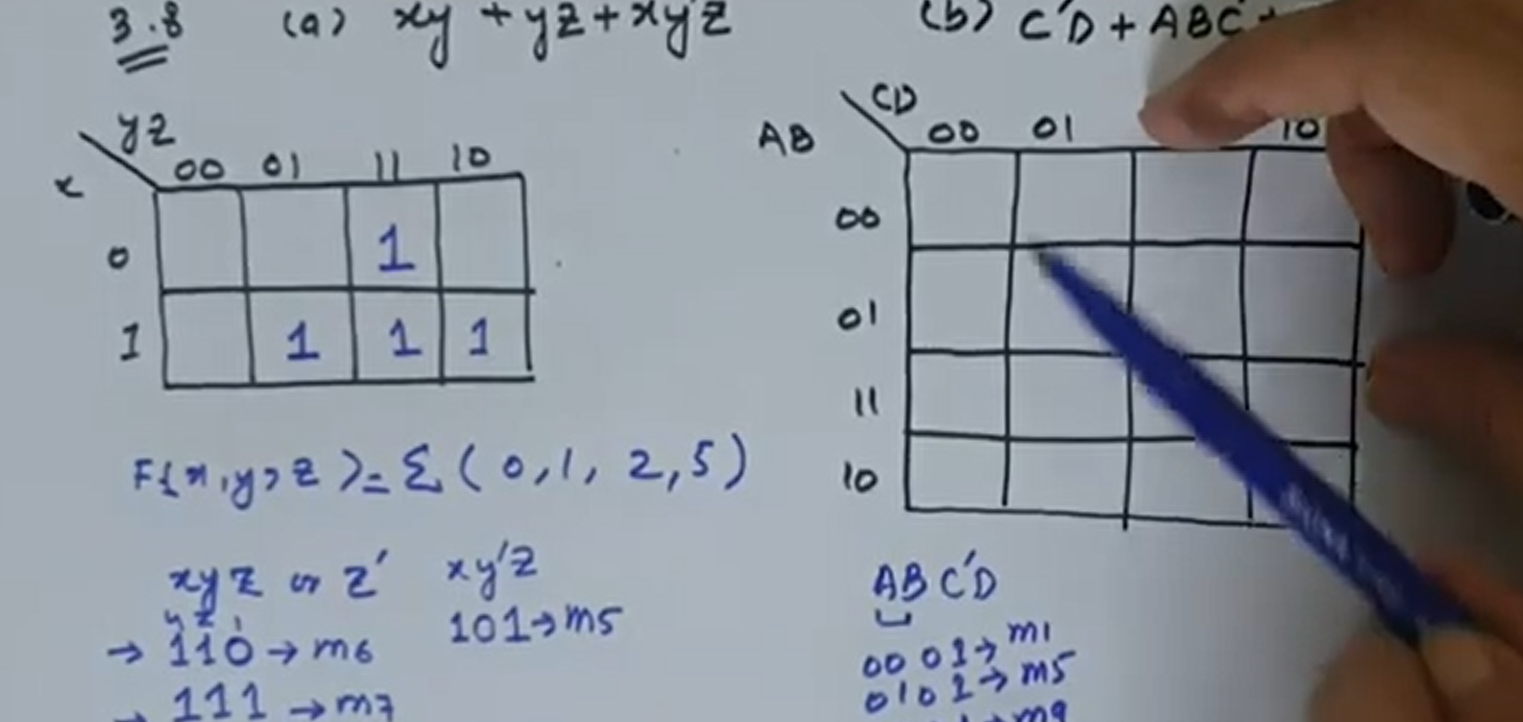 3.8 (a) xy + yz + xy'z
(b) C'D + ABC' +
yz
x
00 01 11 10
0 1
1 1 1 1
F(x,y,z)=Σ(0,1,2,5)
xyz or z' xy'z
yz'
→ 110 → m6
101 → m5
→ 111 → m7
CD
AB
00 01 10
00
01
11
10
ABC'D
00 01 → m1
0101 → m5
→ m9